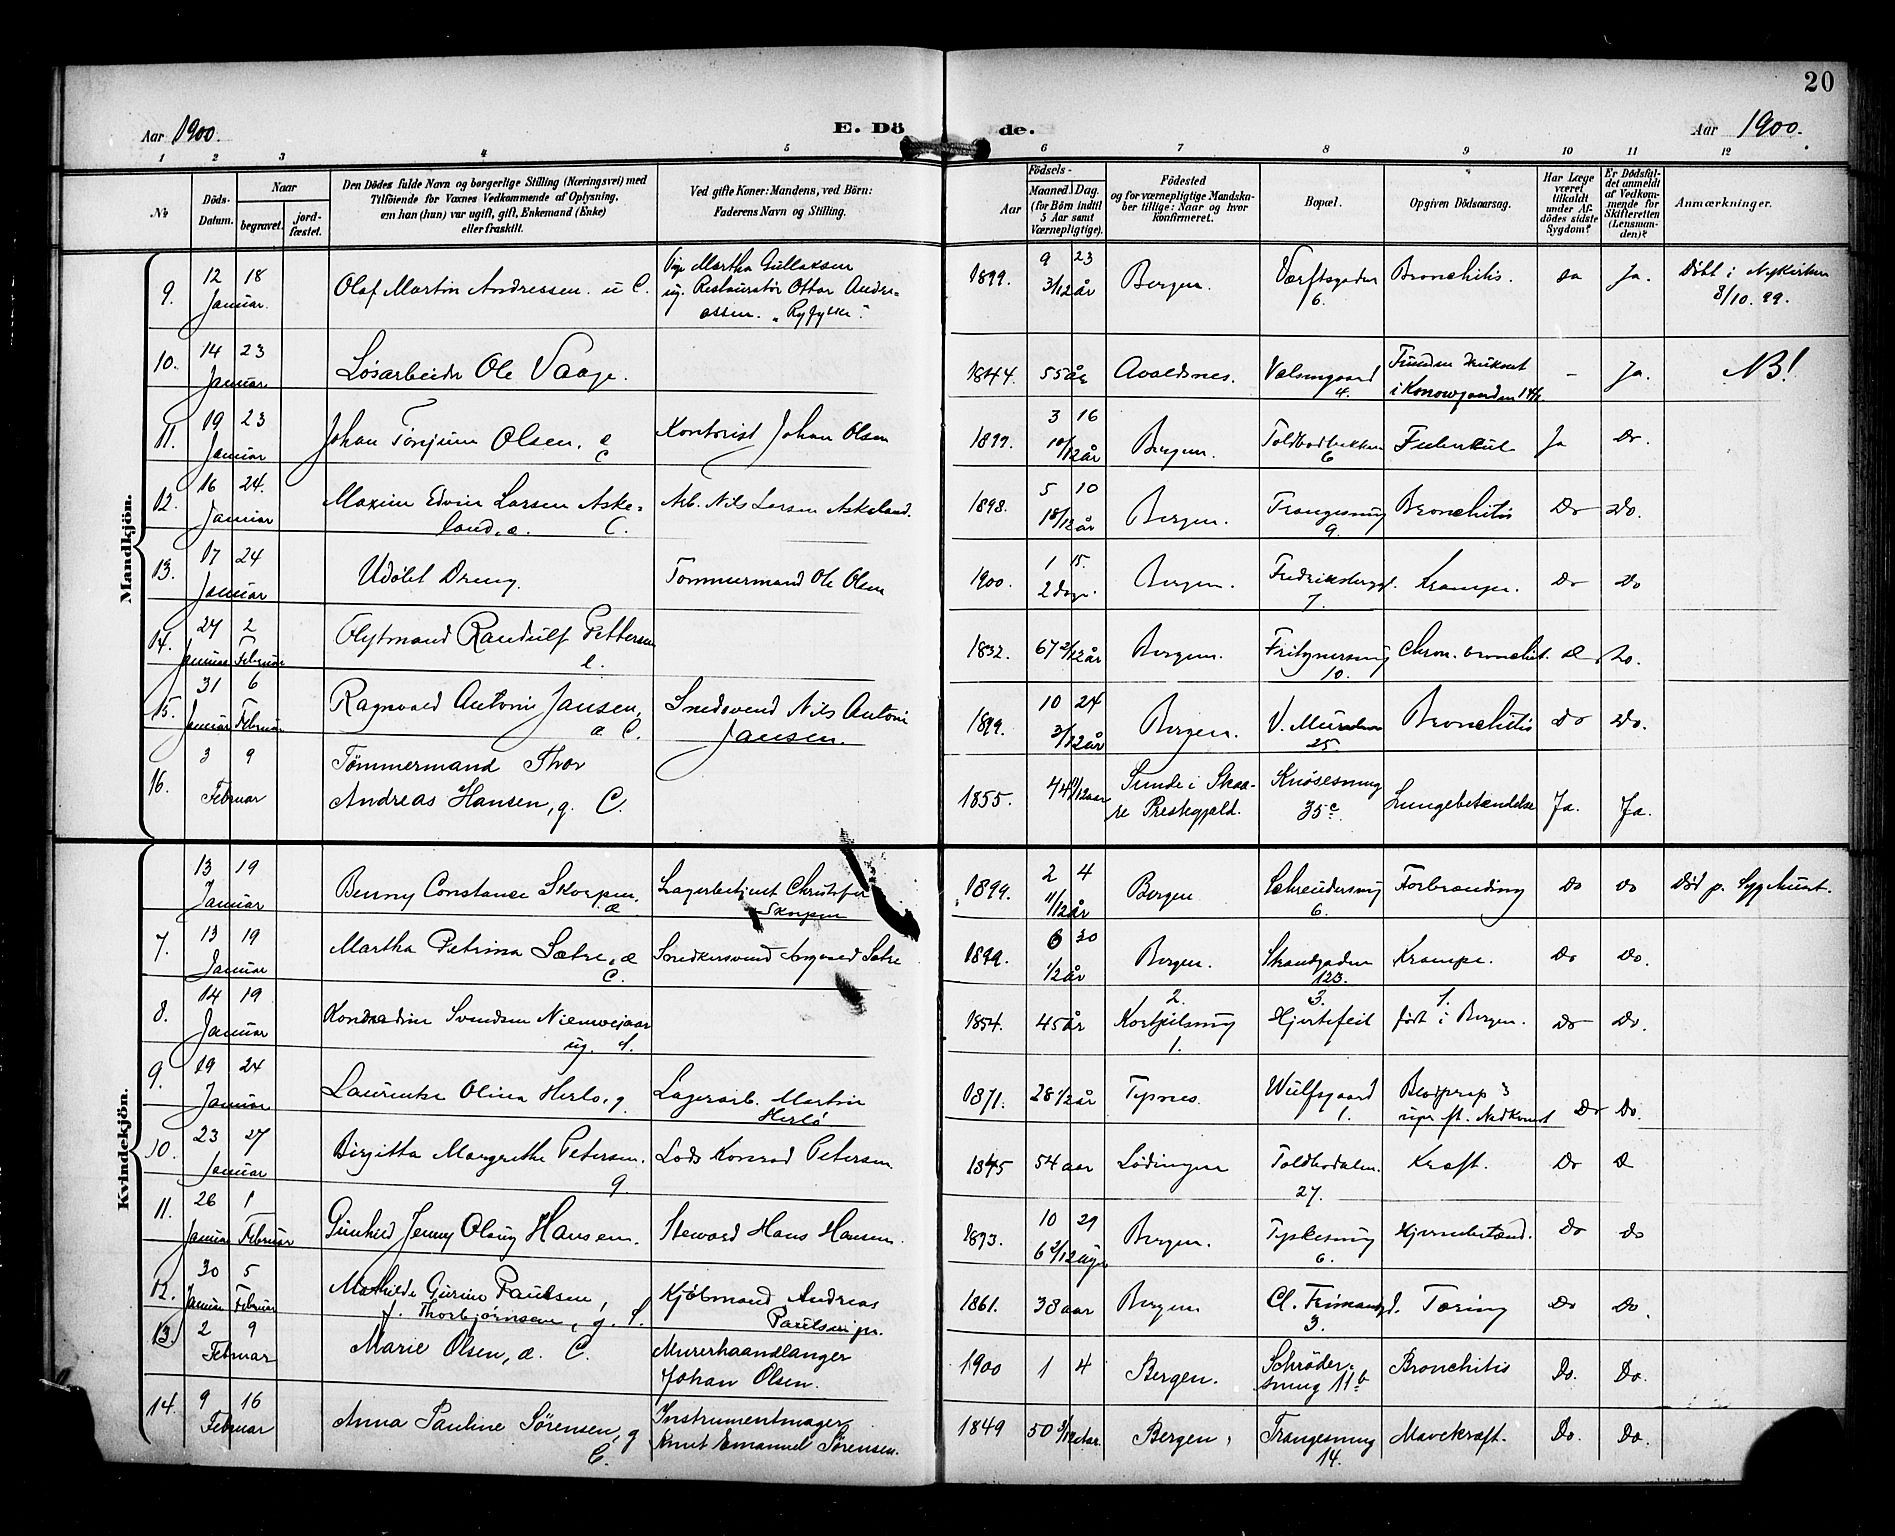 20
Aar 1900.
E. Dö de.
Aar 1900.
1 2 3 4 5 6 7 8 9 10 11 12
No
Döds-Datum.
Naar
begravet.
jordfæstet.
Den Dödes fulde Navn og borgerlige Stilling (Næringsvei) med
Tilföiende for Voxnes Vedkommende af Oplysning,
om han (hun) var ugift, gift, Enkemand (Enke)
eller fraskilt.
Ved gifte Koner: Mandens, ved Börn:
Faderens Navn og Stilling.
Födsels-
Aar
Maaned. Dag.
(for Börn indtil
5 Aar samt
Værnepligtige).
Födested
og for værnepligtige Mandskaber
tillige: Naar og hvor
konfirmeret.
Bopæl.
Opgiven Dödsaarsag.
Har Læge
været
tilkaldt
under Afdödes
sidste
Sygdom?
Er Dödsfaldet
anmeldt
af Vedkommende
for
Skifteretten
(Lensmanden)?
Anmærkninger.
Mandkjön.
9. 12 18 Januar. Olaf Martin Andressen. u C. Pige Martha Gullaksen
ug. Restauratør Ottar Andreassen. 1899. 9 23 3/12 år Bergen. Værftsgaden 6. Bronchitis. Ja. Døbt i Nykirken
8/10. 99.
10. 14 23 Januar Løsarbeider Ole Vaage. 1844. 55 år Avaldsnes. 4. Funden druknet
i Konowgaarden 14/1. – Ja. NB!
11. 19 23 Januar Johan Tønjum Olsen, C Kontorist Johan Olsen 1899. 3 16 10/12 år Bergen. Toldbodbakken 6 Tuberkul Ja Do.
12. 16 24. Januar Maxim Edvin Larsen Askeland, æ. C. Arb. Nils Larsen Askeland. 1898. 5 10 18/12 år Bergen. Trangesmug 9. Bronchitis Do Do.
13. 17 24 Januar Udøbt Dreng Tømmermand Ole Olsen 1900. 1 15. 2 dage. Bergen. Fredriksbergg. 7. Krampe. Do Do
14. 27 2 Januar Februar Flytmand Randulf Pettersen 1832. 67 2/12 år Bergen. Fritznersmug 10. Chron. bronchit. Do.
15. 31 6 Januar Februar Ragnvald Antoni Jansen, æ C. Smedsvend Nils Antoni
Jansen. 1899. 10 24 3/12 år Bergen. V. 25 Bronchitis Do Do.
16. 3 9 Februar Tømmermand Thor
Andreas Hansen, g. C. 1855. 44 /12 aar Sunde i Skaare
Prestegjeld. Knøsesmug 35c. Lungebetændelse Ja. Ja.
Kvindekjön.
13 19 Januar Benny Constance Skorpen. æ Lagerbetjent Christofer
Skorpen 1899. 2 4 11/12 år Bergen Schreudersmug 6. Forbrænding Do Do Død p. Sygehuset.
7. 13 19 Januar Martha Petrina Sætre, æ C. Snedkersvend Sætre 1899. 6 30 1/2 år Bergen. Strandgaden 123. Krampe. Do Do.
8. 14 19 Januar Svendsen ug. 1854. 45 år 2. Kortpilsmug 1. 3. Hjertefeil 1. født i Bergen. Do Do.
9. 19 24 Januar Laurentse Olina Herlø, g Lagerarb. Martin
Herlø 1871. 28 1/2 år Wulfsgaard 1. Blodprop
Nedkomst Do Do.
10. 23 27 Januar Birgitta Margrethe Petersen. g. Lods Konrad Petersen 1845 54 aar Lødingen Toldbodalm. 27. Kræft. Do D
11. 26 1 Januar Februar Gunhild Jenny Olaug Hansen. Steward Hans Hansen. 1893. 10 29 6 2/12 Bergen. Tyskesmug 6. Hjernebetænd. Do Do
12. 30 5 Januar Februar Mathilde Gurine Paulsen,
f. Thorbjørnsen, g. Kjøbmand Andreas
Paulsen jr. 1861. 38 aar Bergen 3. Tæring Do Do.
13. 2 9 Februar Marie Olsen, æ. C. Murerhaandlanger
Johan Olsen. 1900 1 4 Bergen. Schrødersmug 11b Bronchitis Do. Do.
14. 9 16 Februar Anna Pauline Sørensen, g C. Instrumentmager
Knut Emanuel Sørensen. 1849 50 /12 Aar. Bergen. Trangesmug 14. Mavekræft. Do. Do.